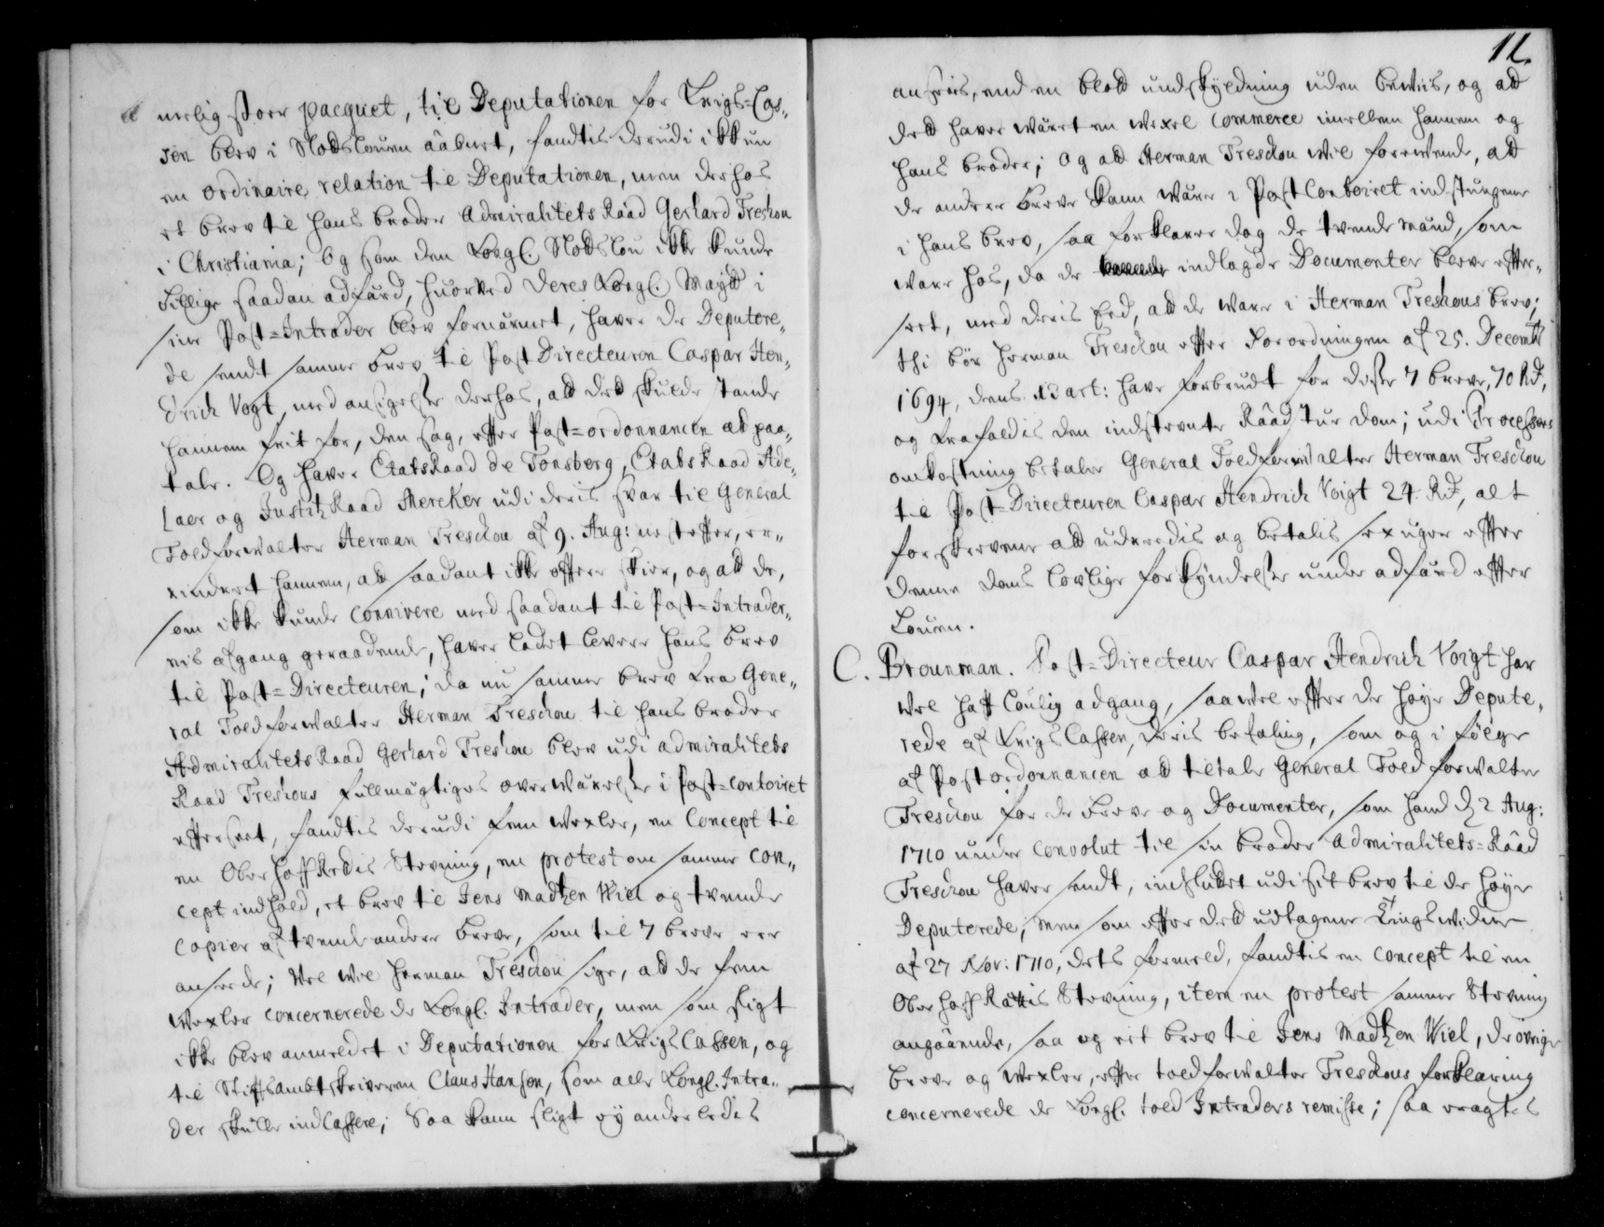 11.
nerlig stoer pacquet, til Deputationen for Krigs=Cas„
sen blev i Slotzlouen aabnet, fandtis derudi ikkun
en ordinaire relation til Deputationen, men derhos
et brev til hans broder Admiralitets Raad Gerhard Treschou
i Christiania; Og som den Kongl. Slotzlou ikke kunde
billige saadan adfærd, huorved Deres Kongl. Mayt. i
sine Post=Intrader blev fornærmet, haver de Deputere„
de sendt samme brev til Post Directeuren Caspar Hen„
drich Vogt, med ansigelse derhos, at det skulde stande
hannem frit for, den sag, efter Post=ordonnancen at paa„
tale. Og haver EtatsRaad de Tonsberg, EtatsRaad Ade„
laer og JustitzRaad Mercker udi deris svar til General
Toldforvalter Herman Treschou af 9. Aug: nest efter, er„
rindret hannem, at saadant ikke oftere skier, og at de,
som ikke kunde connivere med saadant til Post=Intrader„
nis afgang geraadende, haver ladet levere hans brev
til Post=Directeuren; da nu samme brev fra Gene„
ral Toldforvalter Herman Treschou til hans broder
AdmiralitetsRaad Gerhard Treschou blev udi admiralitets
Raad Treschous fuldmægtiges overværelse i Post=contoiret
efterseet, fandtis derudi fem vexler, en Concept til
en OberHoffRettis Stevning, en protest om samme Con„
cept indhold, et brev til Jens Madtzen Wiel og tvende
Copier af tvende andre breve, som til 7 breve er
ansede; Vel vil Herman Treschou sige, at de fem
Vexler concernerede de Kongl. Intrader, men som sligt
ikke blev anmeldet i Deputationen for KrigsCassen, og
til Stiftsambtskriveren Claus Hansen, som alle Kongl. Intra„
der skulle indCassere; Saa kand sligt ey anderledis
ansees, end en blott undskyldning uden beviis, og at
det haver været en vexel Commerce imellem hannem og
hans broder; Og at Herman Treschou vil forevende, at
de andre breve kand være i PostContoiret indstungene
i hans brev, saa forklarer dog de tvende mænd, som
vare hos, da de indlagde Documenter bleve efter„
seet, med deris Eed, at de vare i Herman Treschous brev;
thi bør Herman Treschou efter Forordningen af 25. Decembr
1694, dens 13 art: have forbrudt for disse 7 breve, 70 Rd,
og frafaldis den indstevnte Raadstue dom; udi Processens
omkostning betaler General Toldforvalter Herman Treschou
til Post=Directeuren Caspar Hendrich Voigt 24. Rd, alt
forskrevene at uderedis og betalis sex uger efter
denne doms lovlige forkyndelse under adfærd efter
Louen.
C. Brounman. Post=Directeur Caspar Hendrich Voigt har
vel haft lovlig adgang, saavel efter de høye Depute„
rede af KrigsCassen, deris befaling, som og i følge
af Postordonnancen at tiltale General Toldforvalter
Treschou for de breve og Documenter, som hand d. 2 Aug:
1710 under convolut til sin broder Admiralitets=Raad
Treschou haver sendt, indsluttet udi sit brev til de høye
Deputerede; men som efter det udtagne Tingsvidne
af 27 Nov: 1710, dets formeld, fandtis en concept til en
OberHoffRettis Stevning, item en protest samme Stevning
angaaende, saa og eet brev til Jens Madtzen Wiel, de øvrige
breve og vexler, efter toldforvalter Treschous forklaring
concernerede de Kongl. told Intraders remisse; saa eragtes